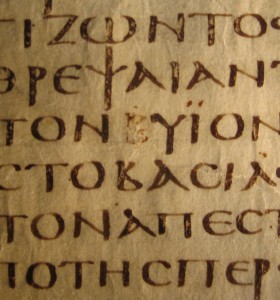 ΤΙΖΩΝΤΟϹ
ΘΡΕΨΑΙΑΝΤ
ΤΟΝΥΪΟΝ
ϹΤΟΒΑϹΙΛ
ΤΟΝΑΠΕϹΤ
ΠΟΤΗϹΠΕΡ